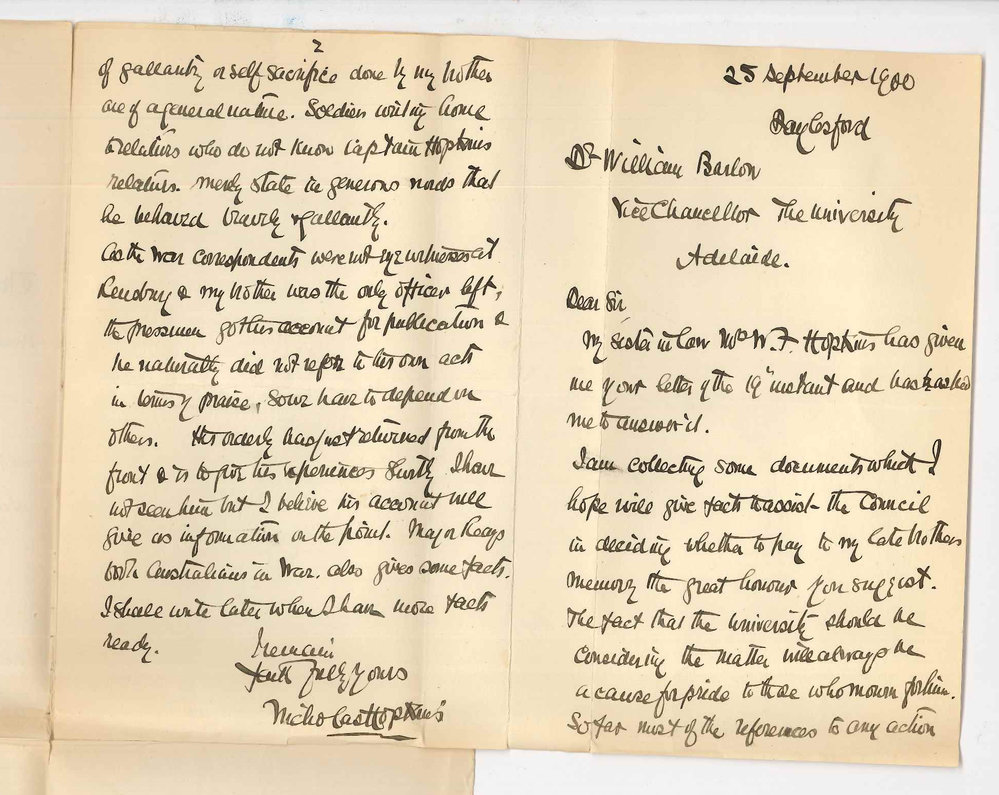 25 September 1900
Daylesford
Dr William Barlow
Vice Chancellor The University
Adelaide.
Dear Sir
My sister in law Mrs W. F. Hopkins has given
me your letter of the 19th instant and has asked
me to answer it.
I am collecting some documents which I
hope will give facts to assist the Council
in deciding whether to pay to my late brothers
memory the great honour you suggest.
The fact that the University should be
considering the matter will always be
a cause for pride to those who mourn for him.
So far most of the references to any action
2
of gallantry or self sacrifice done by my brother
are of a general nature. Soldiers writing home
to relatives who do not know Captain Hopkins
relatives. merely state in generous words that
he behaved bravely & gallantly.
As the War Correspondents were not eye witnesses at
Rensburg & my brother was the only officer left,
the pressmen got his account for publication &
he naturally did not refer to his own acts
in terms of praise, so we have to depend on
others. His orderly has just returned from the
front & is to give his experiences shortly. I have
not seen him but I believe his account will
give us information on the point. Major Reays
book Australians in War. also gives some facts.
I shall write later when I have more facts
ready.
I remain
faithfully yours
Nicholas Hopkins